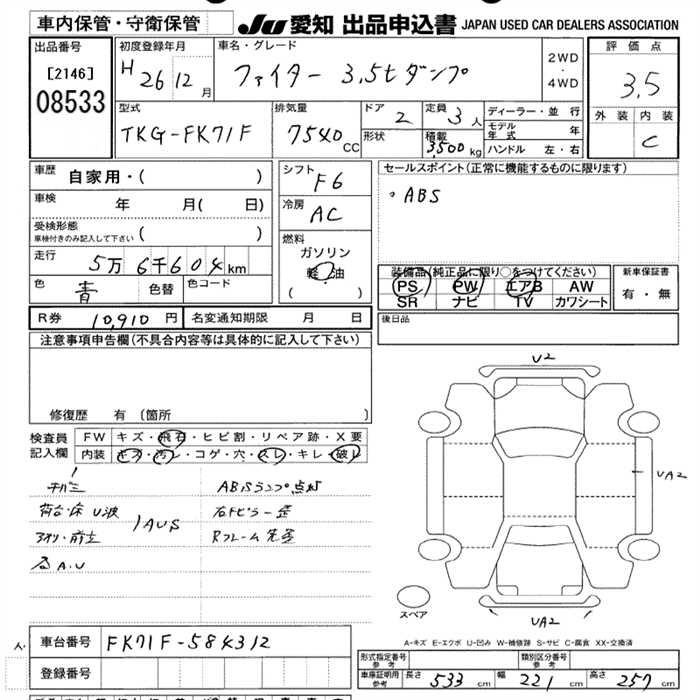 車内保管・守衛保管
JU 愛知 出品申込書 JAPAN USED CAR DEALERS ASSOCIATION
出品番号
[2146]
08533
初度登録年月
H 26 12 月
車名・グレード
ファイター 3.5tダンプ
2WD
・
4WD
評価点
3.5
外装 内装
C
型式
TKG-FK71F
排気量
7540 CC
ドア 2
形状
定員 3 人
積載 3,500 kg
ディーラー・並行
モデル年式 年
ハンドル 左・右
車歴 自家用・( )
車検 年 月( 日)
受検形態
車検付きのみ記入して下さい ( )
走行 5万6千604km
色 青 色替 色コード
シフト F6
冷房 AC
燃料
ガソリン
軽油
( )
セールスポイント(正常に機能するものに限ります)
。ABS
装備品(純正品に限り○をつけてください)
PS PW エアB AW
SR ナビ TV カワシート
新車保証書
有・無
R券 10,910 円 名変通知期限 月 日
後日品
注意事項申告欄(不具合内容等は具体的に記入して下さい)
修復歴 有 (箇所 )
検査員記入欄
FW キズ・飛石・ヒビ割・リペア跡・X要
内装 キズ・汚レ・コゲ・穴・スレ・キレ・破レ
ABSランプ点灯
荷台・床 U波
1AUS
右ドピラー歪
アオリ・前立
Rフレーム先歪
A.U
U2
UA2
UA2
スペア
A-キズ E-エクボ U-凹み W-補修跡 S-サビ C-腐食 XX-交換済
車台番号 FK71F-584312
登録番号
型式指定番号 参考
類別区分番号 参考
車庫証明用参考 長さ 533 cm 幅 221 cm 高さ 257 cm